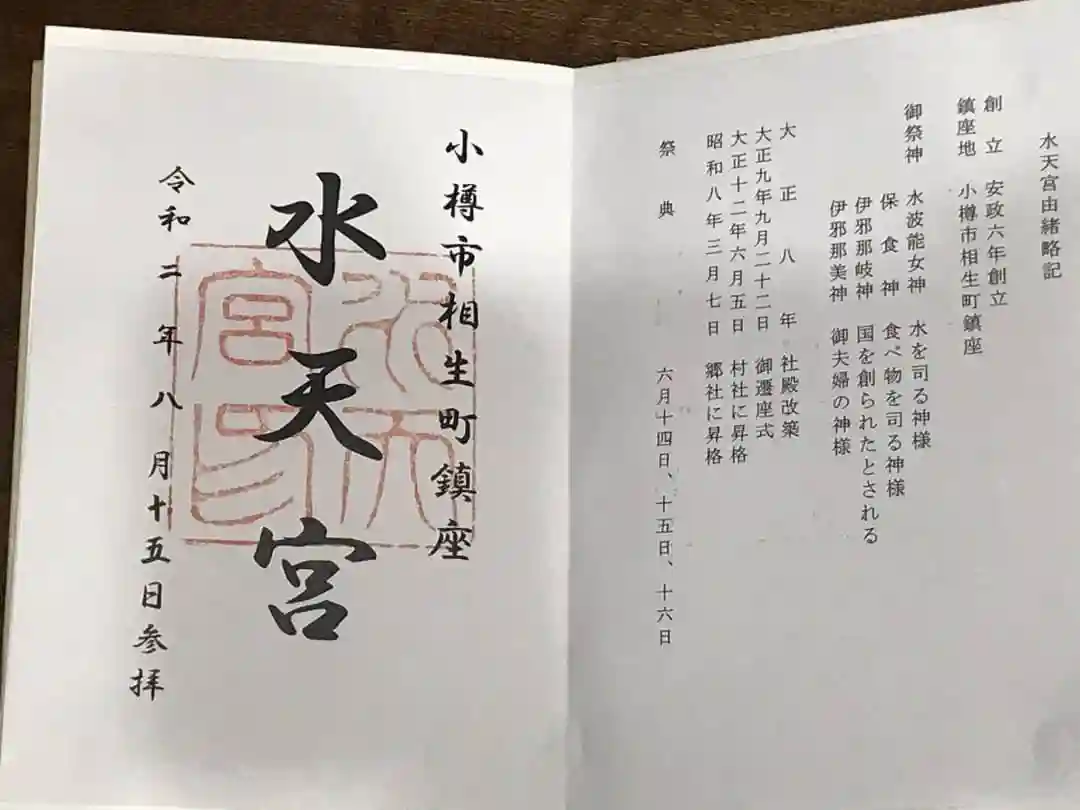 水天宮由緒略記
創立 安政六年創立
鎮座地 小樽市相生町鎮座
御祭神 水波能女神 水を司る神様
保食神 食べ物を司る神様
伊邪那岐神 国を創られたとされる
伊邪那美神 御夫婦の神様
大正八年 社殿改築
大正九年九月二十二日 御遷座式
大正十二年六月五日 村社に昇格
昭和八年三月七日 郷社に昇格
祭典 六月十四日、十五日、十六日
小樽市相生町鎮座
水天宮
令和二年八月十五日参拝
水天
宮印